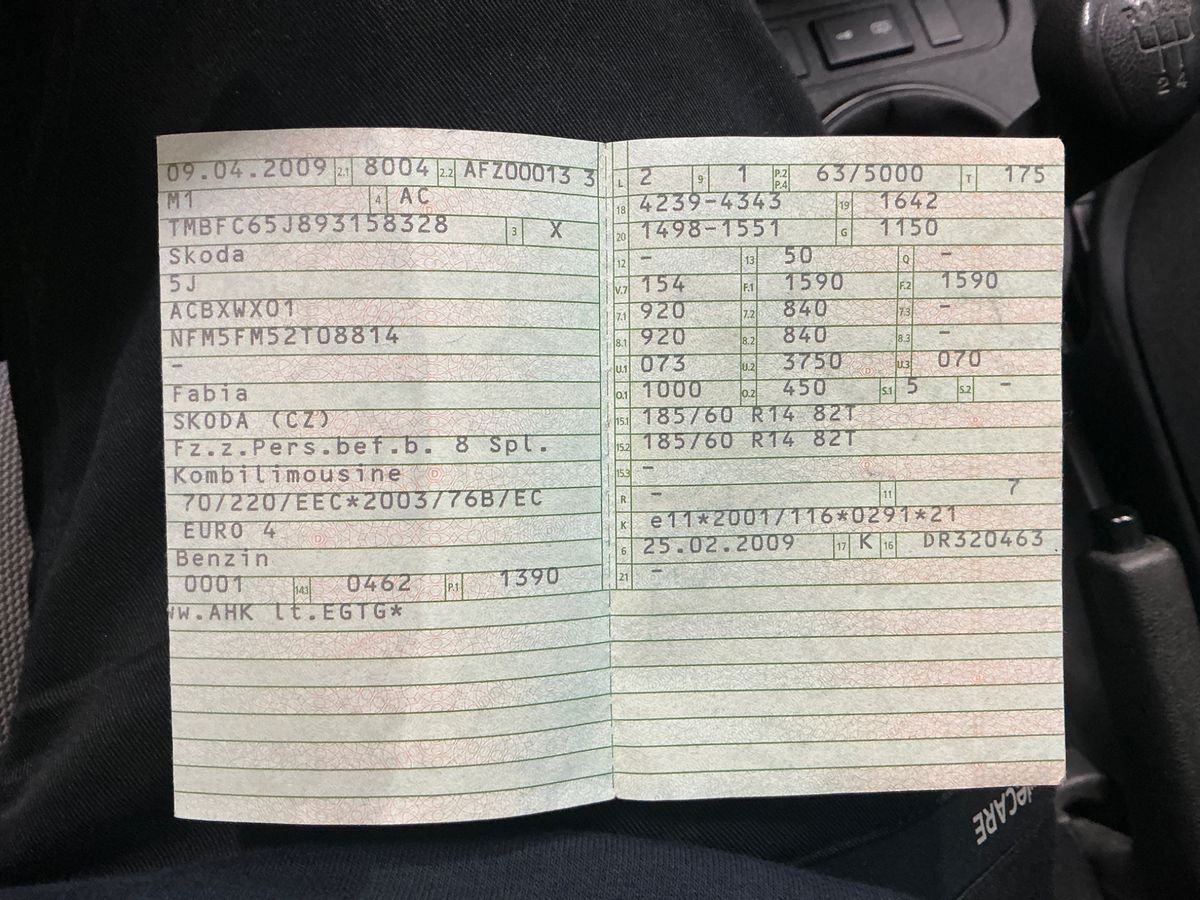 09.04.2009 2.1 8004 2.2 AFZ00013 3
M1 4 AC
TMBFC65J893158328 3 X
Skoda
5J
ACBXWX01
NFM5FM52T08814
-
Fabia
SKODA (CZ)
Fz.z.Pers.bef.b. 8 Spl.
Kombilimousine
70/220/EEC*2003/76B/EC
EURO 4
Benzin
0001 14.3 0462 P.1 1390
ww.AHK lt.EGTG*
L 2 9 1 P.2 P.4 63/5000 T 175
18 4239-4343 19 1642
20 1498-1551 G 1150
12 - 13 50 Q -
V.7 154 F.1 1590 F.2 1590
7.1 920 7.2 840 7.3 -
8.1 920 8.2 840 8.3 -
U.1 073 U.2 3750 U.3 070
O.1 1000 O.2 450 S.1 5 S.2 -
15.1 185/60 R14 82T
15.2 185/60 R14 82T
15.3 -
R - 11 7
K e11*2001/116*0291*21
6 25.02.2009 17 K 16 DR320463
21 -